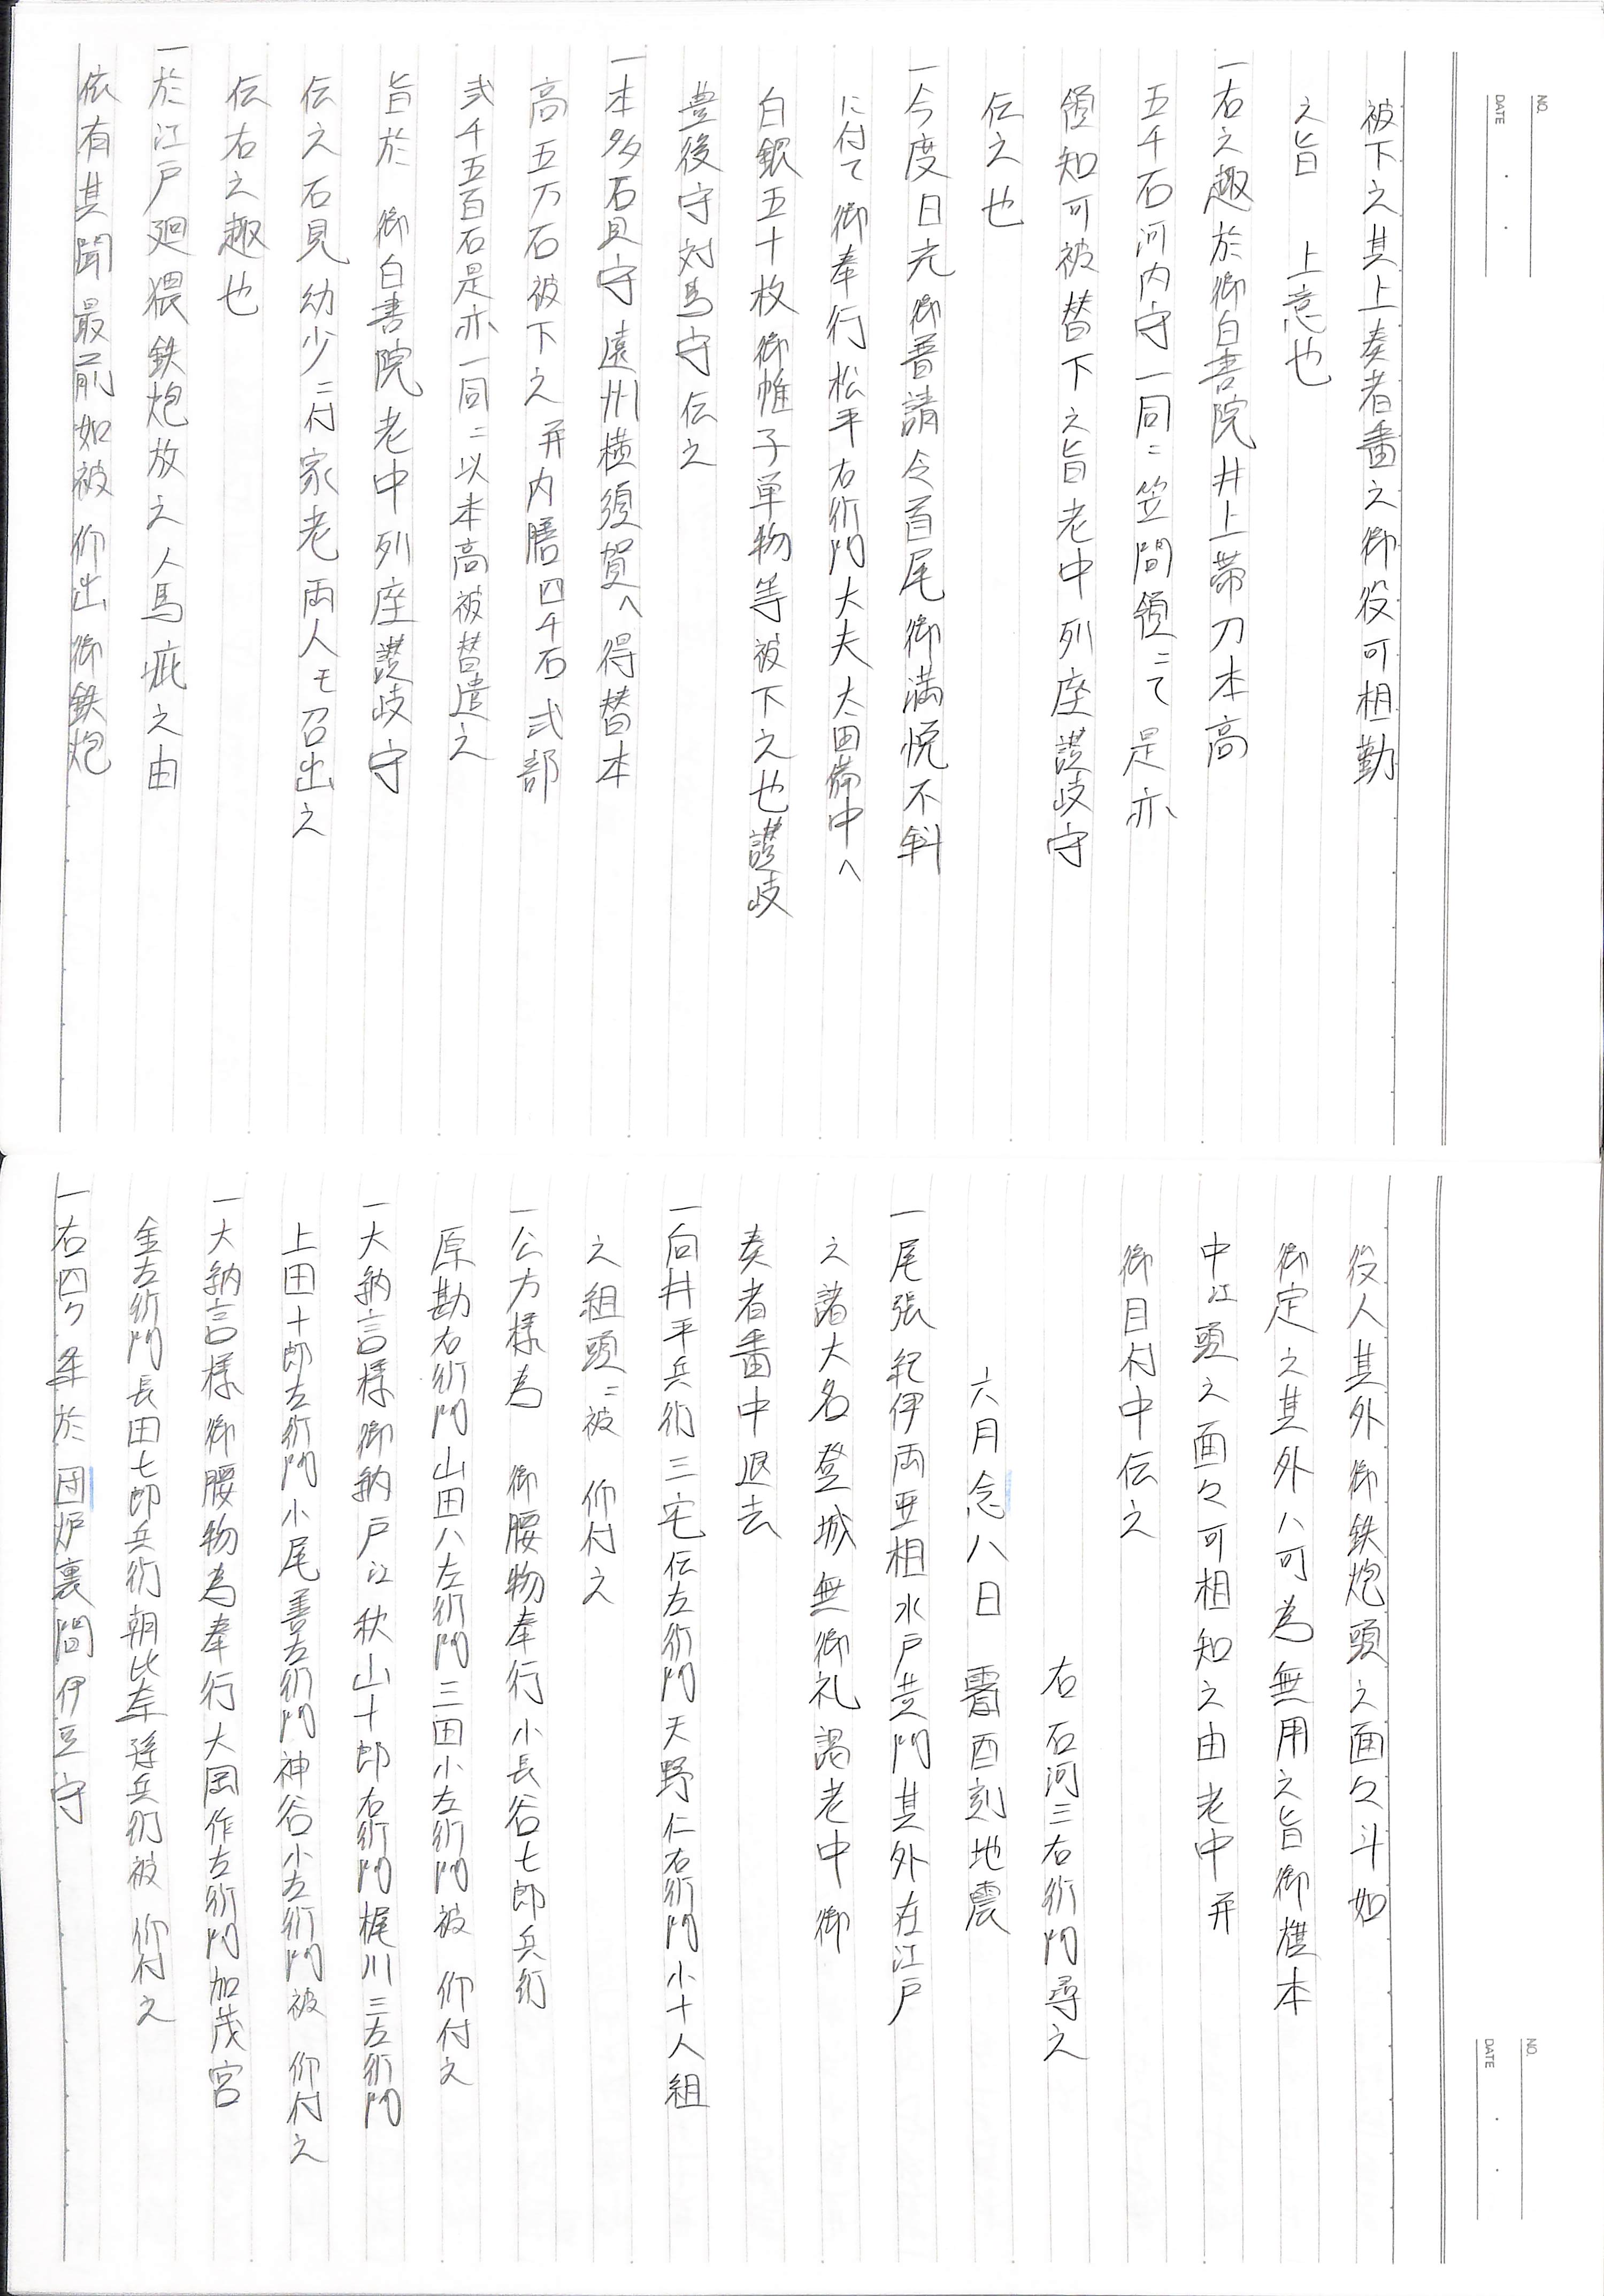 NO.
DATE
被下之其上奏者番之御役可相勤
之旨　上意也
一右之趣於御白書院井上帯刀本高
五千石河内守一同ニ笠間領ニて是亦
領知可被替下之旨老中列座讃岐守
伝之也
一今度日光御普請令首尾御満悦不斜
に付て御奉行松平右衛門大夫太田備中へ
白銀五十枚御帷子単物等被下之也讃岐
豊後守対馬守伝之
一本多石見守遠州横須賀へ得替本
高五万石被下之并内膳四千石式部
弐千五百石是亦一同ニ以本高被替遣之
旨於　御白書院老中列座讃岐守
伝之石見幼少ニ付家老両人モ召出之
伝右之趣也
一於江戸廻猥鉄炮放之人馬疵之由
依有其聞最前如被　仰出御鉄炮
NO.
DATE
役人其外御鉄炮頭之面々斗如
御定之其外ハ可為無用之旨御旗本
中江頭之面々可相知之由老中并
御目付中伝之
右　石河三右衛門尋之
六月念八日　霽酉刻地震
一尾張紀伊両亜相水戸黄門其外在江戸
之諸大名登城無御礼謁老中御
奏者番中退去
一向井平兵衛三宅伝左衛門天野仁右衛門小十人組
之組頭ニ被　仰付之
一公方様為　御腰物奉行小長谷七郎兵衛
原勘右衛門山田八左衛門三田小左衛門被　仰付之
一大納言様御納戸江秋山十郎右衛門梶川三左衛門
上田十郎左衛門小尾善左衛門神谷小左衛門被　仰付之
一大納言様御腰物為奉行大岡作左衛門加茂宮
金左衛門長田七郎兵衛朝比奈孫兵衛被　仰付之
一右四ケ年於団炉裏間伊豆守